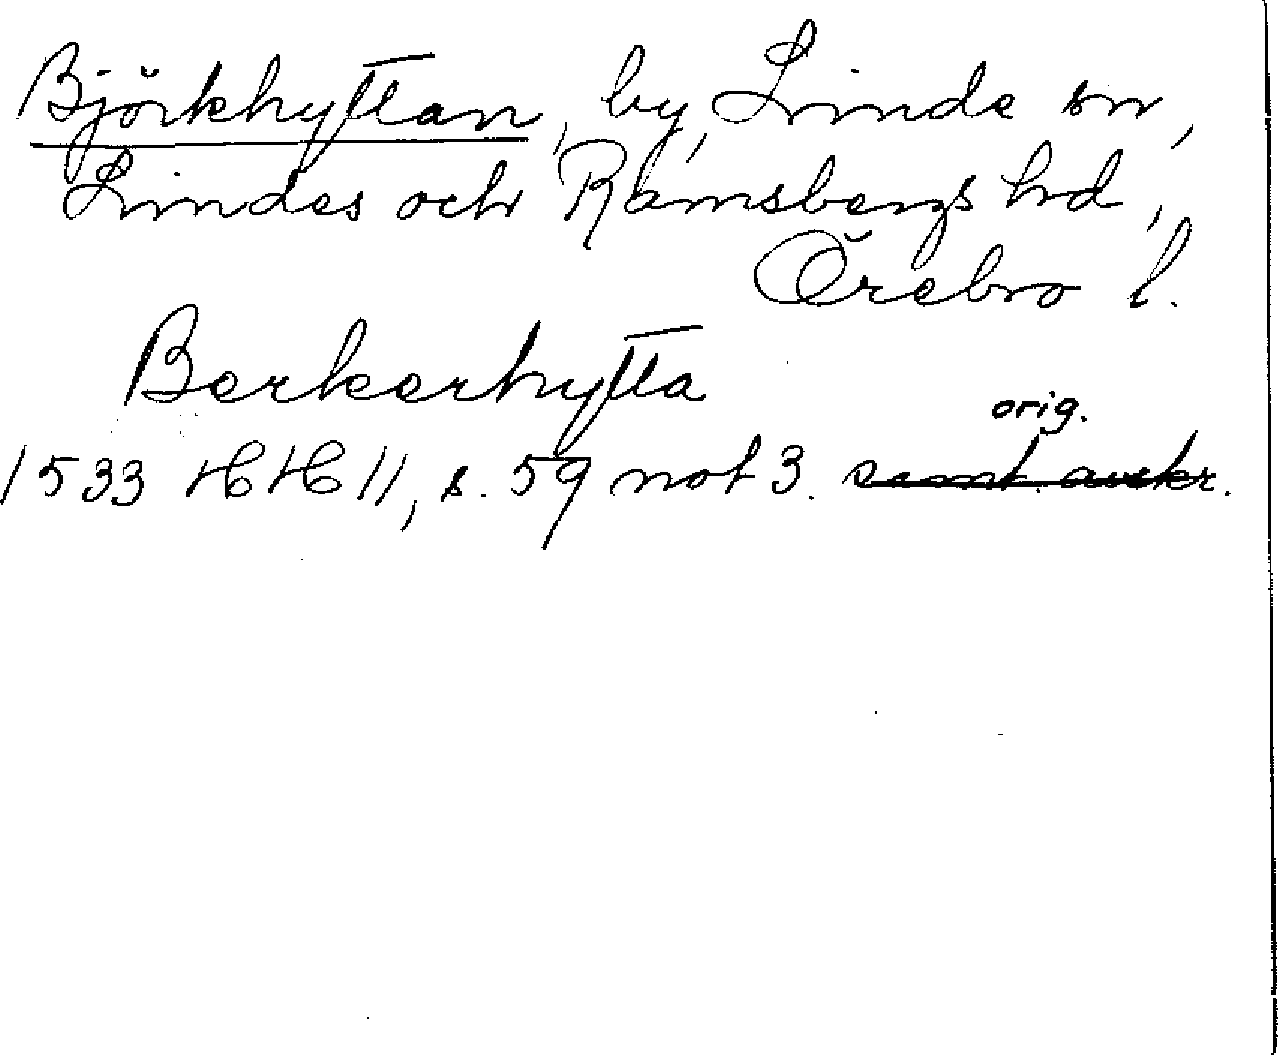 Björkhyttan, by, Linde sn,
Lindes och Ramsbergs hd,
Örebro l.
Berkerhytta
orig.
1533 HH 11, s. 59 not 3. samt. avskr.